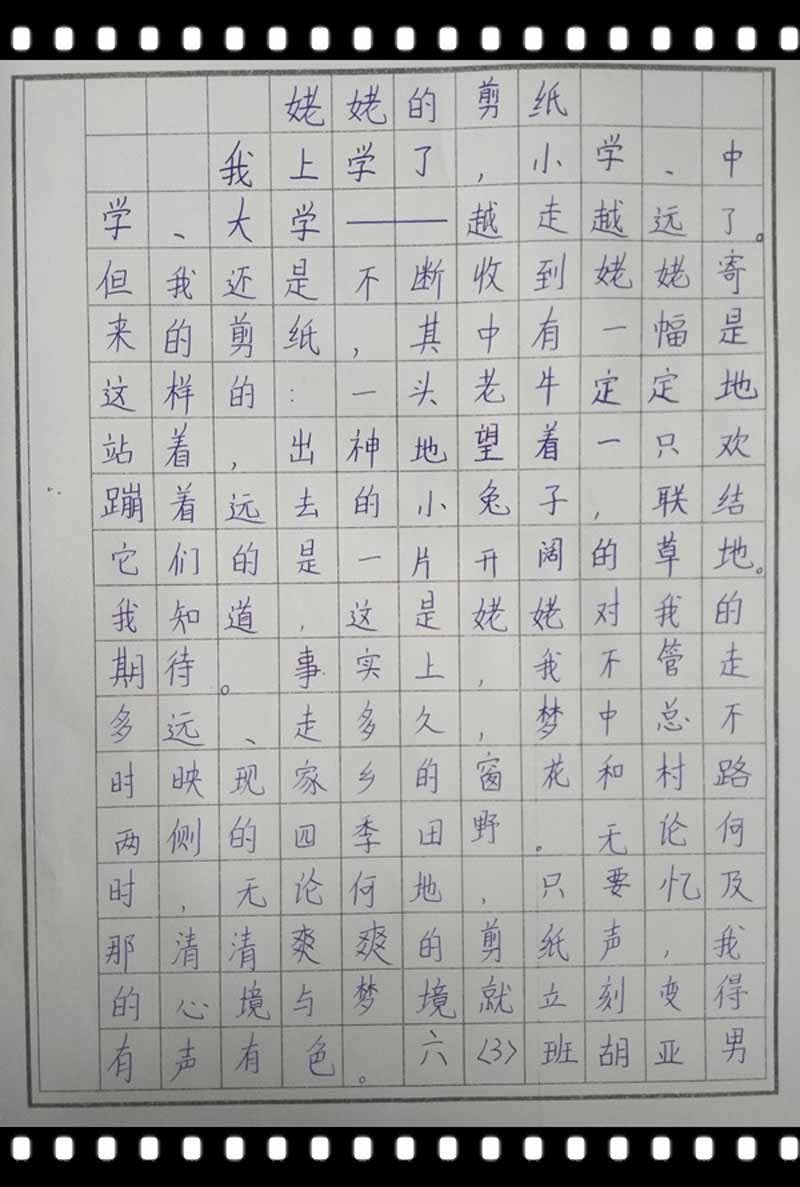 姥姥的剪纸
我上学了，小学、中
学、大学——越走越远了。
但我还是不断收到姥姥寄
来的剪纸，其中有一幅是
这样的：一头老牛定定地
站着，出神地望着一只欢
蹦着远去的小兔子，联结
它们的是一片开阔的草地。
我知道，这是姥姥对我的
期待。事实上，我不管走
多远、走多久，梦中总不
时映现家乡的窗花和村路
两侧的四季田野。无论何
时，无论何地，只要忆及
那清清爽爽的剪纸声，我
的心境与梦境就立刻变得
有声有色。六〈3〉班胡亚男